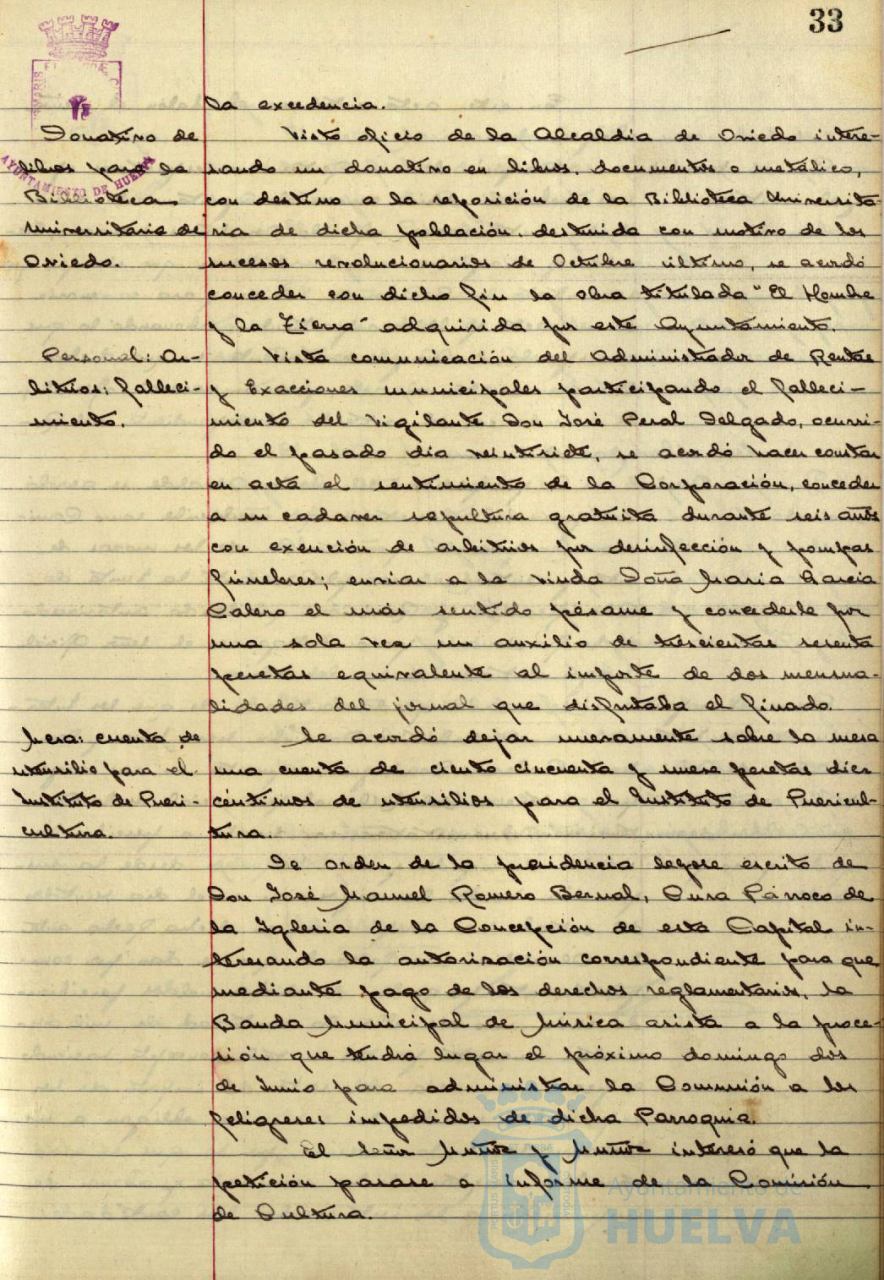 33
la excedencia.
Donativo de
libros para la
Biblioteca
Universitaria de
Oviedo.
Visto oficio de la Alcaldia de Oviedo intere-
sando un donativo en libros, documentos o metálico,
con destino a la reposición de la Biblioteca Universita-
ria de dicha población, destruida con motivo de los
sucesos revolucionarios de Octubre último, se acordó
conceder con dicho fin la obra titulada "El Hombre
y la Tierra" adquirida por este Ayuntamiento.
Personal: Ar-
bitrios; falleci-
miento.
Vista comunicación del Administrador de Rentas
y Exacciones municipales participando el falleci-
miento del Vigilante Don José Peral Delgado, ocurri-
do el pasado dia veintisiete, se acordó hacer constar
en acta el sentimiento de la Corporación, conceder
a su cadaver sepultura gratuita durante seis años
con exención de arbitrios por desinfección y pompas
fúnebres; enviar a la viuda Doña Maria Garcia
Calero el más sentido pésame y concederle por
una sola vez un auxilio de trescientas sesenta
pesetas equivalente al importe de dos mensua-
lidades del jornal que disfrutaba el finado.
Mesa: cuenta de
utensilio para el
Instituto de Pueri-
cultura.
Se acordó dejar nuevamente sobre la mesa
una cuenta de ciento cincuenta y nueve pesetas diez
céntimos de utensilios para el Instituto de Puericul-
tura.
De orden de la presidencia leyose escrito de
Don José Manuel Romero Bernal, Cura Párroco de
la Iglesia de la Concepción de esta Capital in-
teresando la autorización correspondiente para que
mediante pago de los derechos reglamentarios, la
Banda Municipal de Música asista a la proce-
sión que tendrá lugar el próximo domingo dos
de Junio para administrar la Comunión a los
feligreses impedidos de dicha Parroquia.
El Señor Muñoz y Muñoz interesó que la
petición pasase a informe de la Comisión
de Cultura.
AYUNTAMIENTO DE HUELVA
Ayuntamiento de
HUELVA